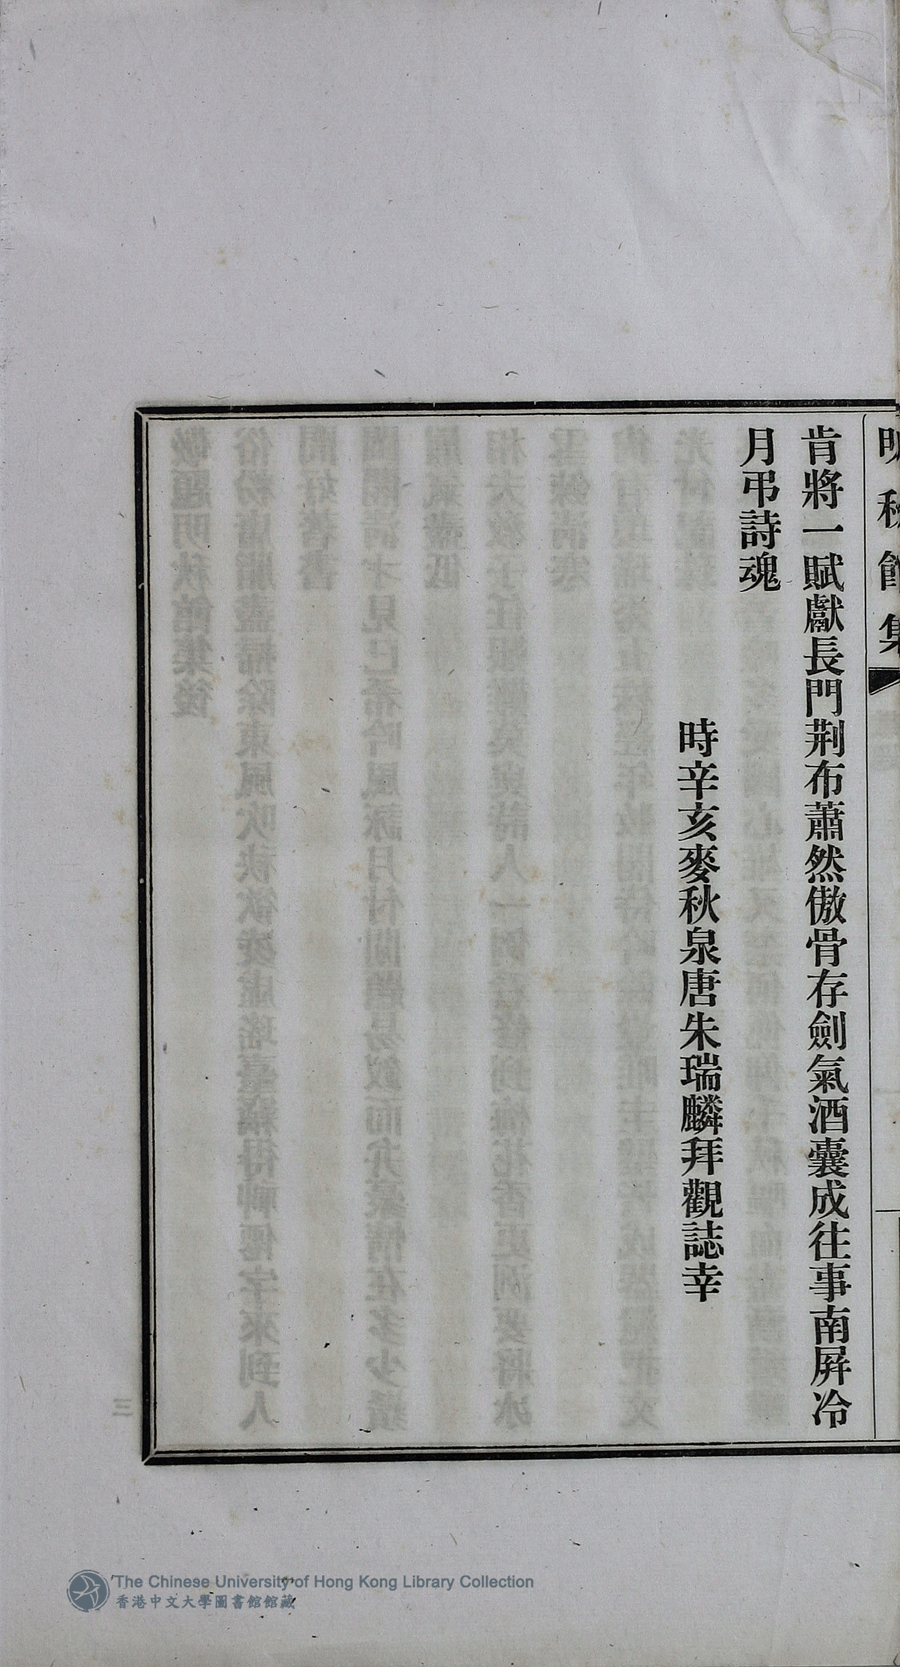 明秋館集
肯將一賦獻長門荆布蕭然傲骨存劍氣酒囊成往事南屛冷
月弔詩魂
時辛亥麥秋泉唐朱瑞麟拜觀誌幸
The Chinese University of Hong Kong Library Collection
香港中文大學圖書館館藏